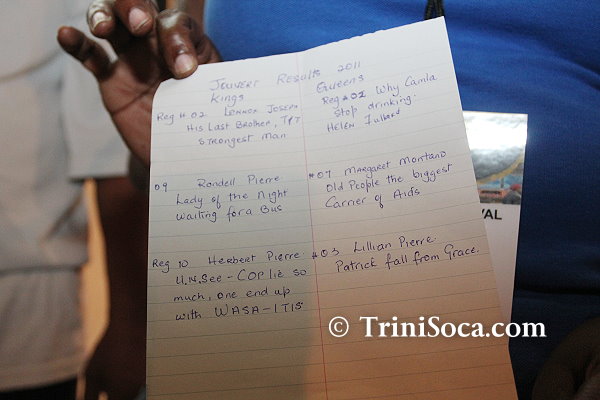 Jouvert Results 2011
Kings
Reg # 02 Lennox Joseph
His Last Brother, T&T
Strongest Man
09 Rondell Pierre
Lady of the Night
waiting for a Bus
Reg 10 Herbert Pierre
U.N.See - COP lie so
much, one end up
with WASA - ITIS
Queens
Reg # 02 Why Camla
Stop drinking.
Helen Fullard
#07 Margaret Montano
Old People the biggest
Carrier of Aids
#03 Lillian Pierre
Patrick fall from Grace.
VAL
© TriniSoca.com